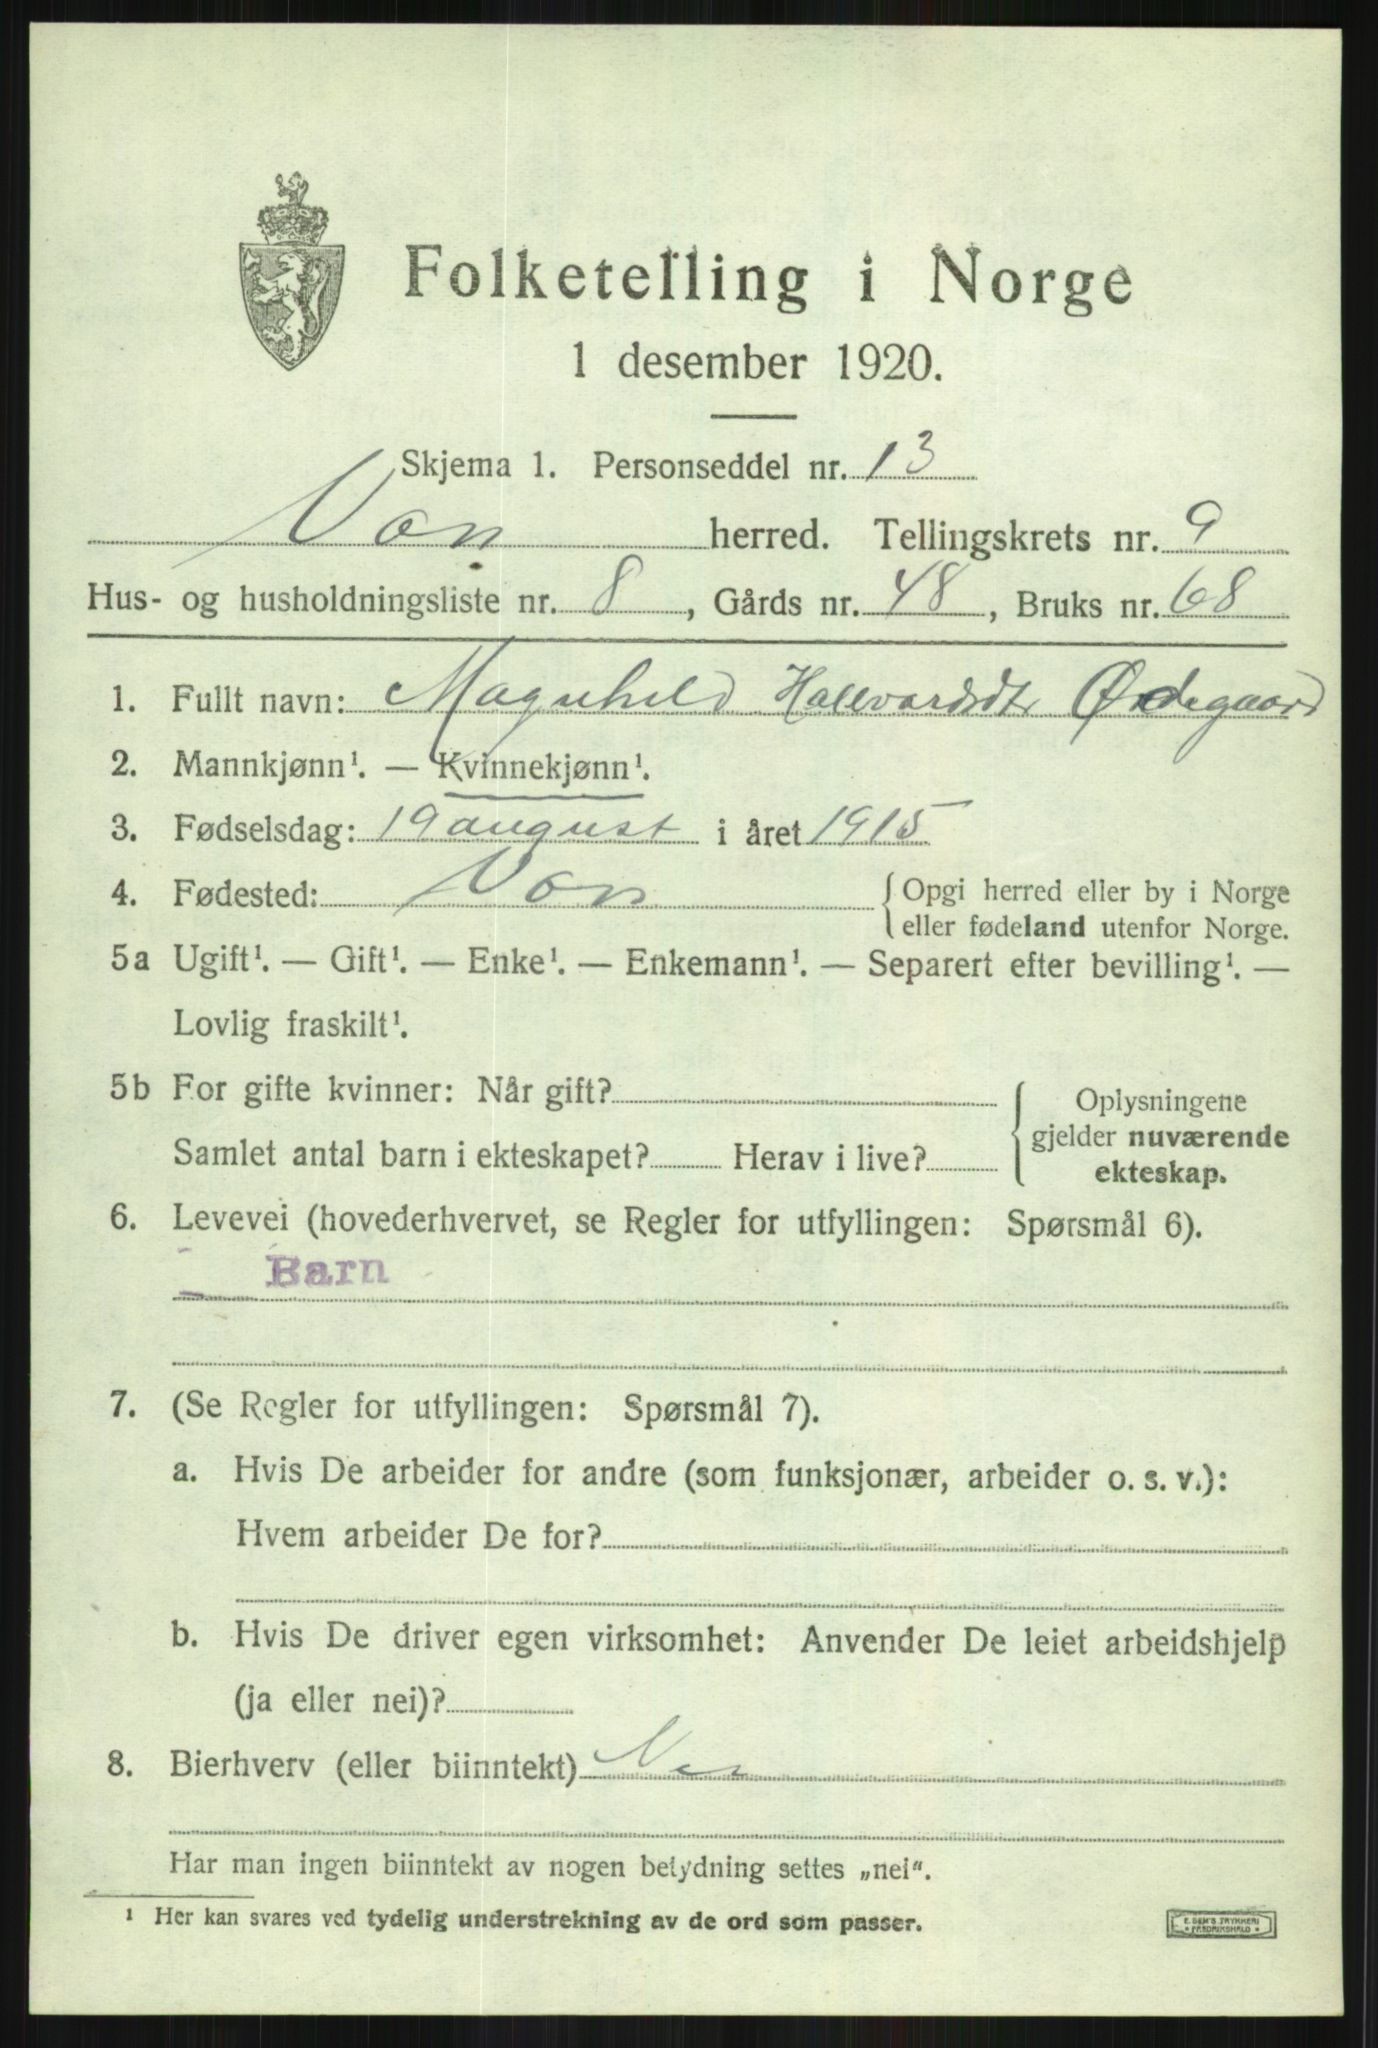 Folketelling i Norge
1 desember 1920.
Skjema 1. Personseddel nr. 13
Von herred. Tellingskrets nr. 9
Hus- og husholdningsliste nr. 8, Gårds nr. 48, Bruks nr. 68
1. Fullt navn: Magnhild Hallvardsdtr Ødegaard
2. Mannkjønn¹. — Kvinnekjønn¹.
3. Fødselsdag: 19 august i året 1915
4. Fødested: Von { Opgi herred eller by i Norge
eller fødeland utenfor Norge.
5a Ugift¹. — Gift¹. — Enke¹. — Enkemann¹. — Separert efter bevilling¹. —
Lovlig fraskilt¹.
5b For gifte kvinner: Når gift? { Oplysningene
gjelder nuværende
Samlet antal barn i ekteskapet? Herav i live? ekteskap.
6. Levevei (hovederhvervet, se Regler for utfyllingen: Spørsmål 6).
Barn
7. (Se Regler for utfyllingen: Spørsmål 7).
a. Hvis De arbeider for andre (som funksjonær, arbeider o. s. v.):
Hvem arbeider De for?
b. Hvis De driver egen virksomhet: Anvender De leiet arbeidshjelp
(ja eller nei)?
8. Bierhverv (eller biinntekt) Nei
Har man ingen biinntekt av nogen betydning settes „nei“.
¹ Her kan svares ved tydelig understrekning av de ord som passer.
E. SEM'S TRYKKERI
FREDRIKSHALD